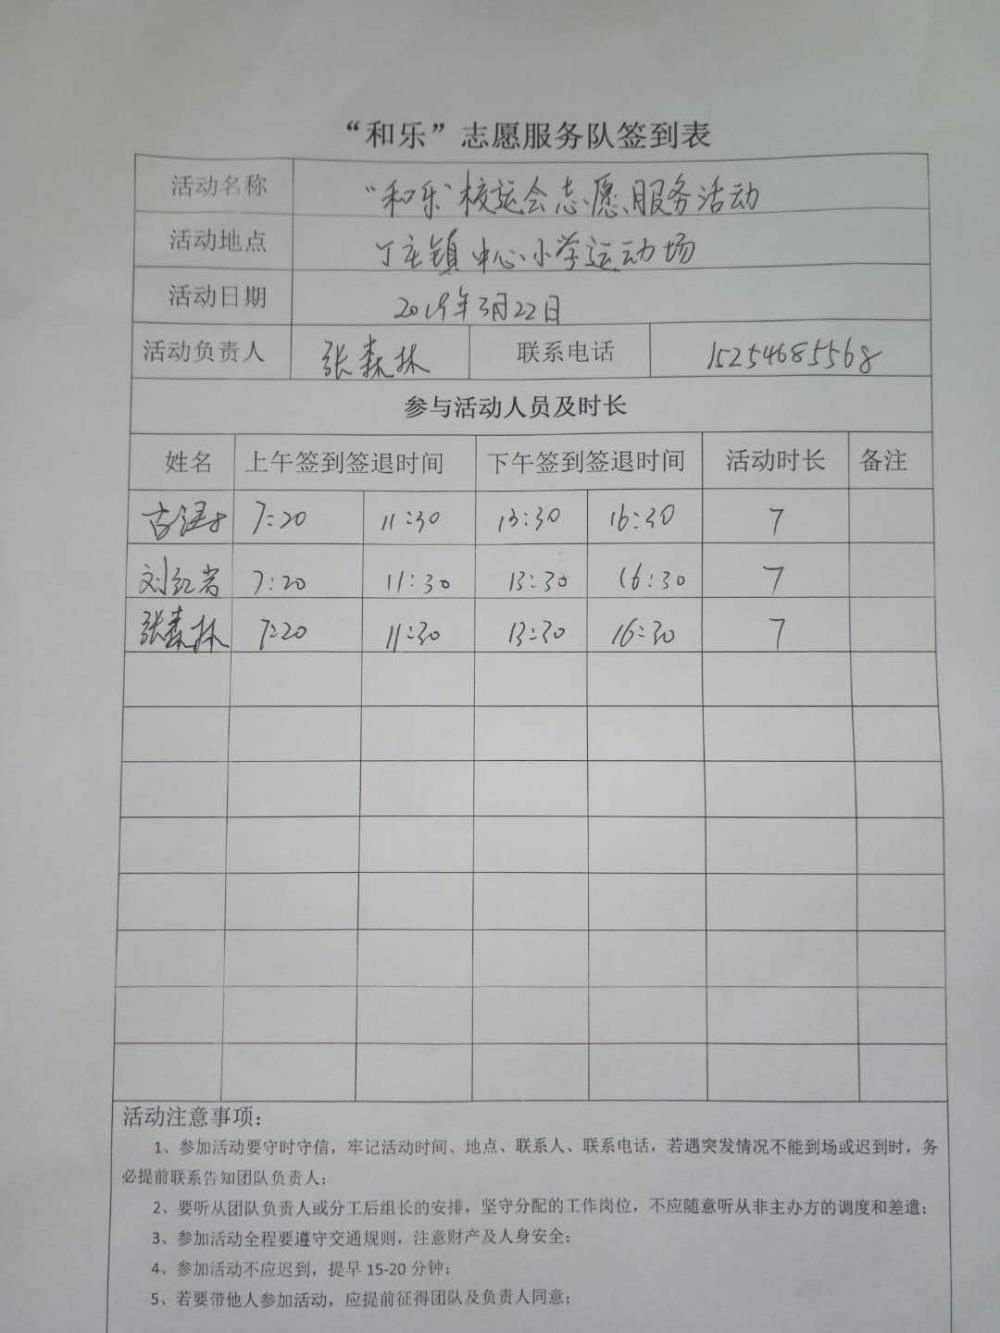 “和乐”志愿服务队签到表
活动名称 “和乐”校运会志愿服务活动
活动地点 丁庄镇中心小学运动场
活动日期 2019年3月22日
活动负责人 张森林 联系电话 15254685568
参与活动人员及时长
姓名 上午签到签退时间 下午签到签退时间 活动时长 备注
7:20 11:30 13:30 16:30 7
刘红岩 7:20 11:30 13:30 16:30 7
张森林 7:20 11:30 13:30 16:30 7
活动注意事项：
1、参加活动要守时守信，牢记活动时间、地点、联系人、联系电话，若遇突发情况不能到场或迟到时，务
必提前联系告知团队负责人；
2、要听从团队负责人或分工后组长的安排，坚守分配的工作岗位，不应随意听从非主办方的调度和差遣；
3、参加活动全程要遵守交通规则，注意财产及人身安全；
4、参加活动不应迟到，提早 15-20 分钟；
5、若要带他人参加活动，应提前征得团队及负责人同意；